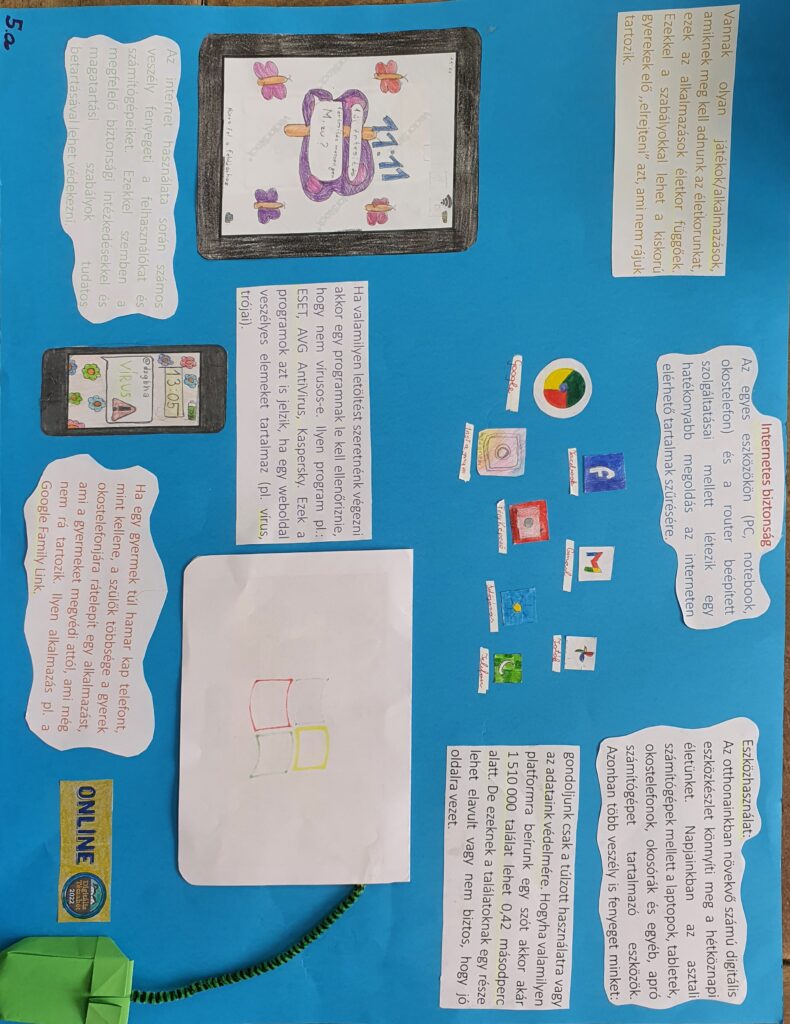 5.a
Vannak olyan játékok/alkalmazások,
amiknek meg kell adnunk az életkorunkat,
ezek az alkalmazások életkor függőek.
Ezekkel a szabályokkal lehet a kiskorú
gyerekek elő „elrejteni” azt, ami nem rájuk
tartozik.
Internetes biztonság
Az egyes eszközökön (PC, notebook,
okostelefon) és a router beépített
szolgáltatásai mellett létezik egy
hatékonyabb megoldás az interneten
elérhető tartalmak szűrésére.
Eszközhasználat:
Az otthonainkban növekvő számú digitális
eszközkészlet könnyíti meg a hétköznapi
életünket. Napjainkban az asztali
számítógépek mellett a laptopok, tabletek,
okostelefonok, okosórák és egyéb, apró
számítógépet tartalmazó eszközök.
Azonban több veszély is fenyeget minket:
gondoljunk csak a túlzott használatra vagy
az adataink védelmére. Hogyha valamilyen
platformra beírunk egy szót akkor akár
1 510 000 találat lehet 0,42 másodperc
alatt. De ezeknek a találatoknak egy része
lehet elavult vagy nem biztos, hogy jó
oldalra vezet.
Google
Instagram
Facebook
Gmail
Időjárás
Fotók
Telefon
11:11
M.zu?
Ha valamilyen letöltést szeretnénk végezni
akkor egy programnak le kell ellenőriznie,
hogy nem vírusos-e. Ilyen program pl.:
ESET, AVG AntiVirus, Kaspersky. Ezek a
programok azt is jelzik, ha egy weboldal
veszélyes elemeket tartalmaz (pl. vírus,
trójai).
Az internet használata során számos
veszély fenyegeti a felhasználókat és
számítógépeiket. Ezekkel szemben a
megfelelő biztonsági intézkedésekkel és
magatartási szabályok tudatos
betartásával lehet védekezni.
13:05
VÍRUS
Ha egy gyermek túl hamar kap telefont,
mint kellene, a szülők többsége a gyerek
okostelefonjára rátelepít egy alkalmazást,
ami a gyermeket megvédi attól, ami még
nem rá tartozik. Ilyen alkalmazás pl. a
Google Family Link.
ONLINE
Digitális
Témahét
2022